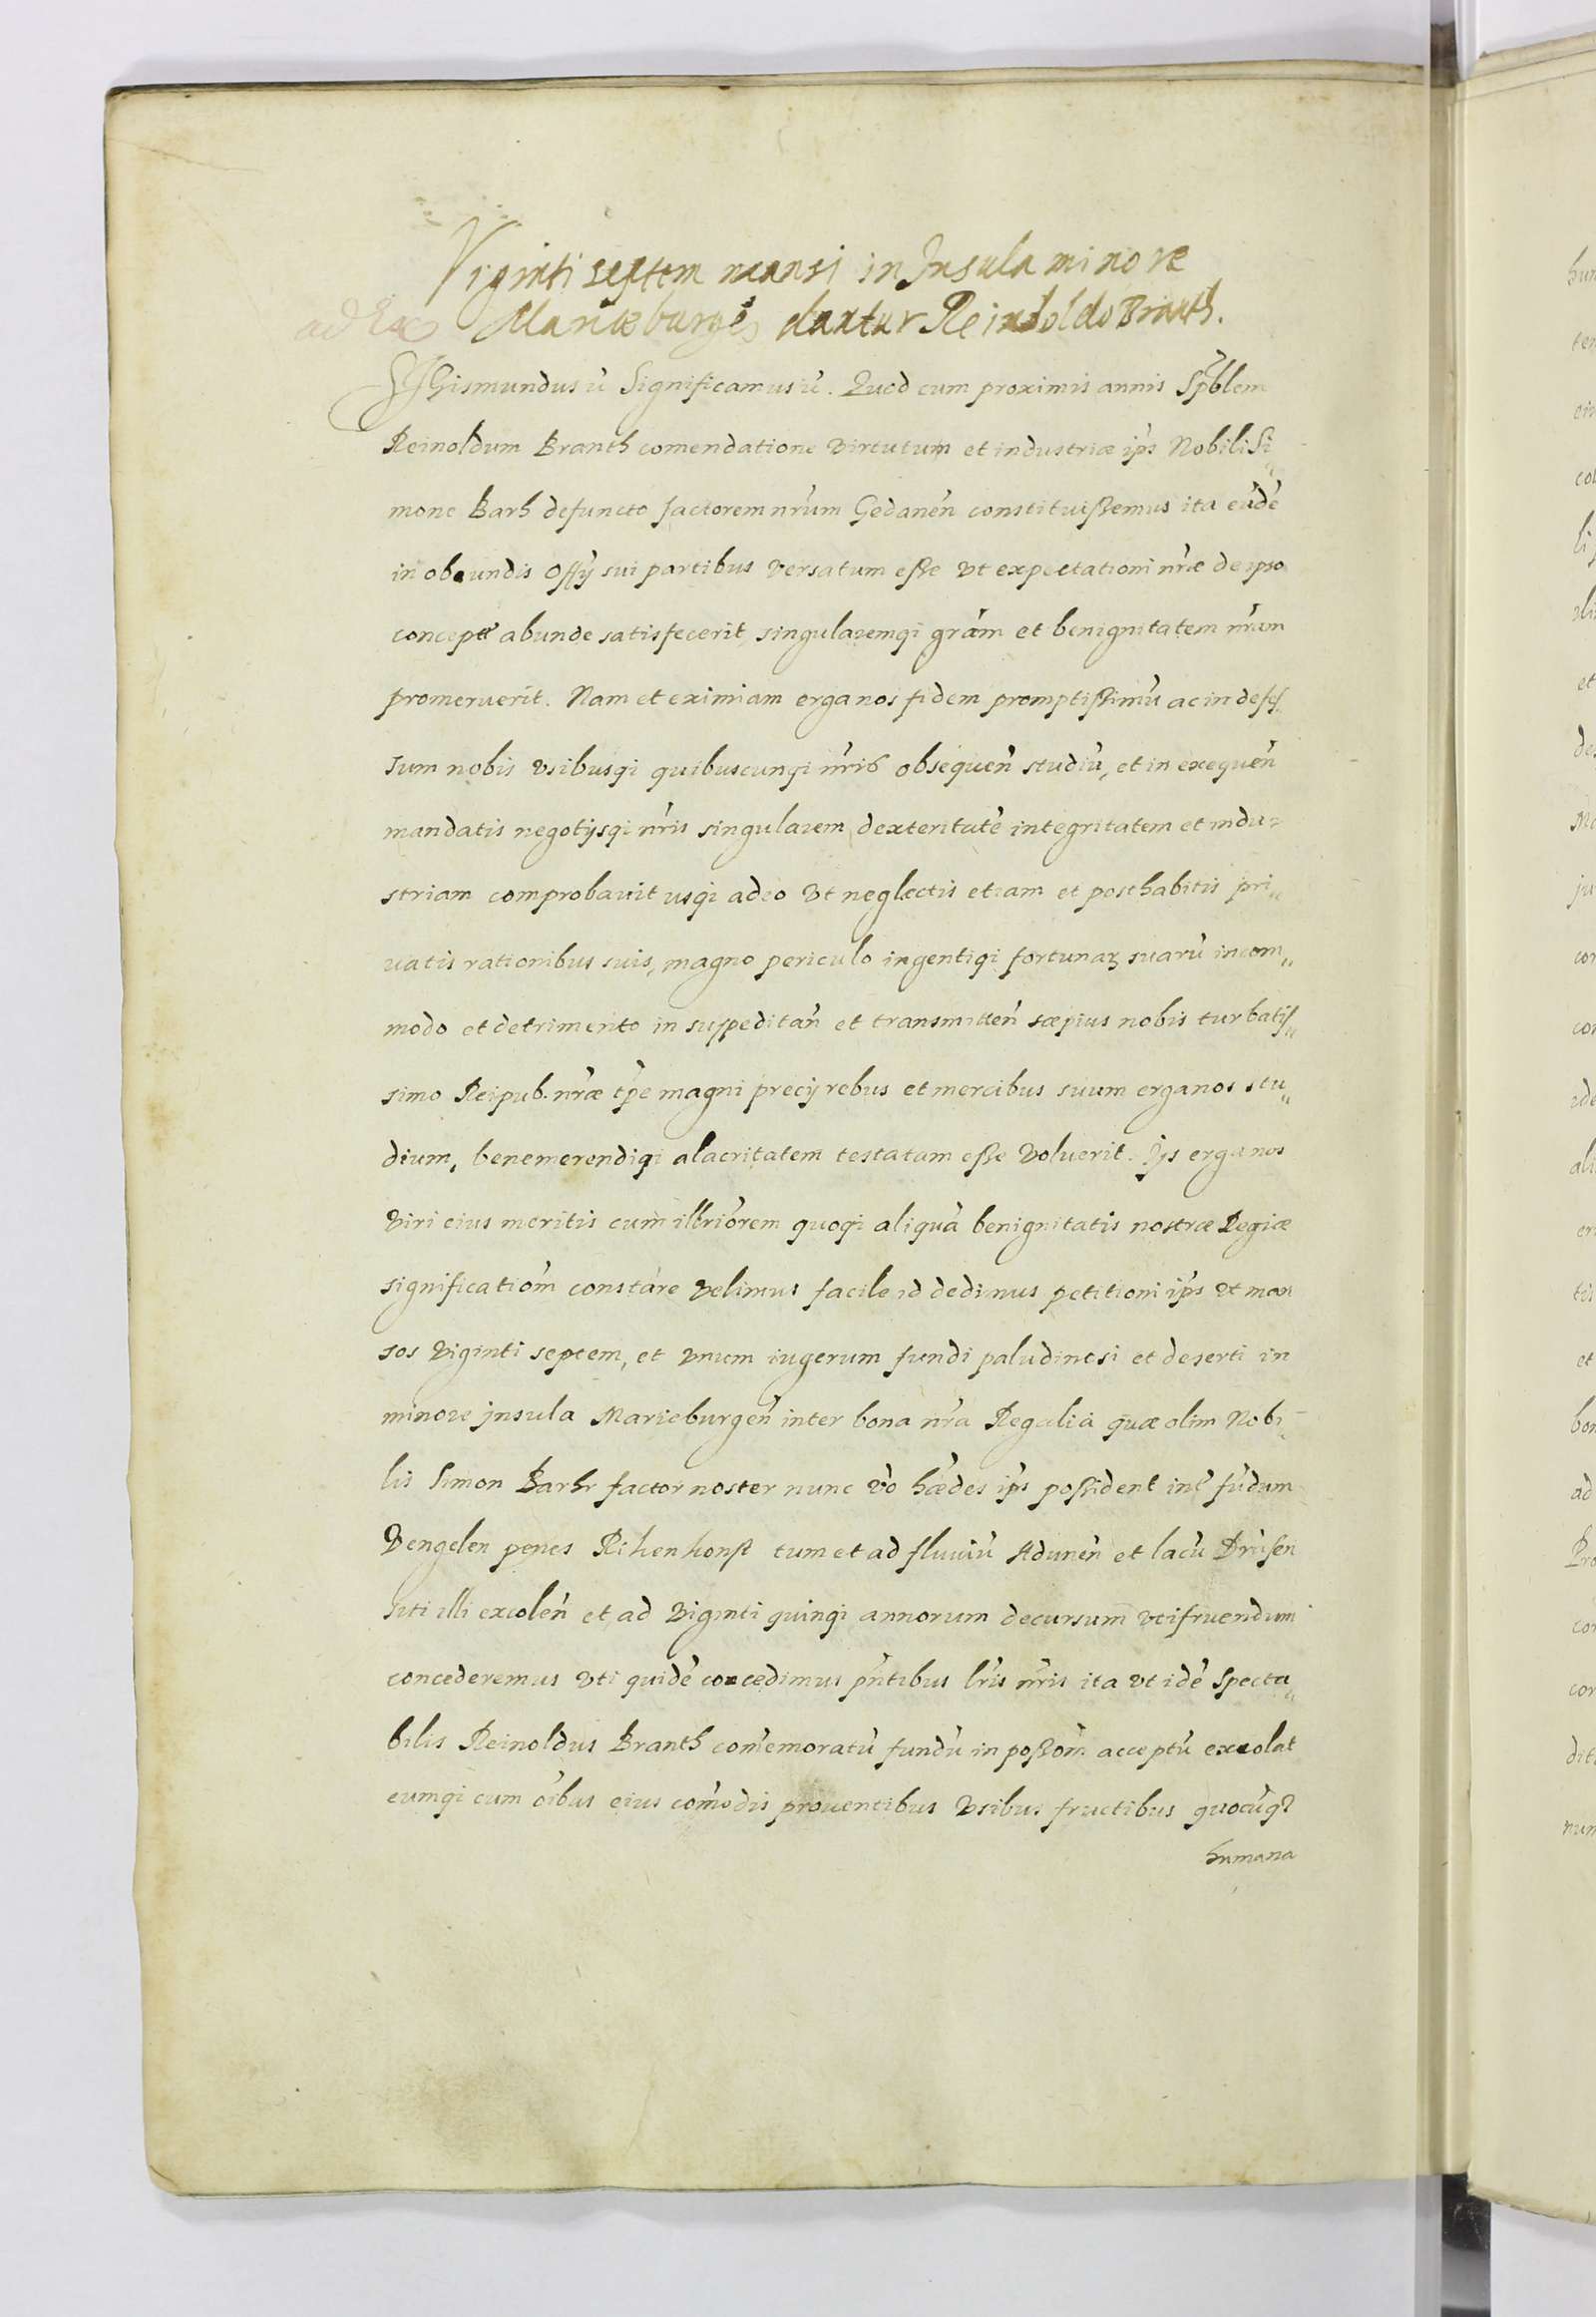 Viginti septem mansi in Insula minore
Marieburgēn dantur Reinholdo Branth.
Sigismundus ū Significamus ū. Quod cum proximis annis Spblem
Reinoldum Branth comendatione virtutum et industriæ ips Nobili Si„
mone Barh defuncto factorem nrum Gedanen constituissemus ita eudē
in obeundis offij sui partibus versatum esse vt expectationi nræ de ipso
conceptæ abunde satisfecerit, singularemqi gram et benignitatem nram
promeruerit. Nam et eximiam erga nos fidem promptissimū ac indefes„
sum nobis vsibusqi quibuscunqi nris obsequen studiū, et in exequen
mandatis negotijsqi nris singularem dexteritatē integritatem et indu„
striam comprobauit usqi adeo vt neglectis etiam et posthabitis pri„
uatis rationibus suis, magno periculo ingentiqi fortunaꝝ suarū incom„
modo et detrimento in suppeditan et transmitten sæpius nobis turbatis„
simo Reipub. nræ tpe magni precij rebus et mercibus suum erga nos stu„
dium, benemerendiqi alacritatem testatam esse voluerit. Ijs erga nos
viri eius meritis cum illriorem quoqi aliquā benignitatis nostræ Regiæ
significatiom constare velimus facile id dedimus petitioni ips vt man
sos viginti septem, et vnum iugerum fundi paludinosi et deserti in
minore jnsula Marieburgen inter bona nra Regalia quæ olim Nobi„
lis Simon Barhr factor noster nunc vo hædes ips possident int fūdum
Vengelen penes Rihenhonst tum et ad fluuiū Adunen et lacū Drusen
siti illi excolen et ad viginti quinqi annorum decursum vtifruendum
concederemus vti quidē concedimus pntibus lris nris ita vt idē Specta„
bilis Reinoldus Branth comemoratū fundū in possom acceptū excolat
eumqi cum oibus eius comodis prouentibus vsibus fructibus quocūqȝ
humana